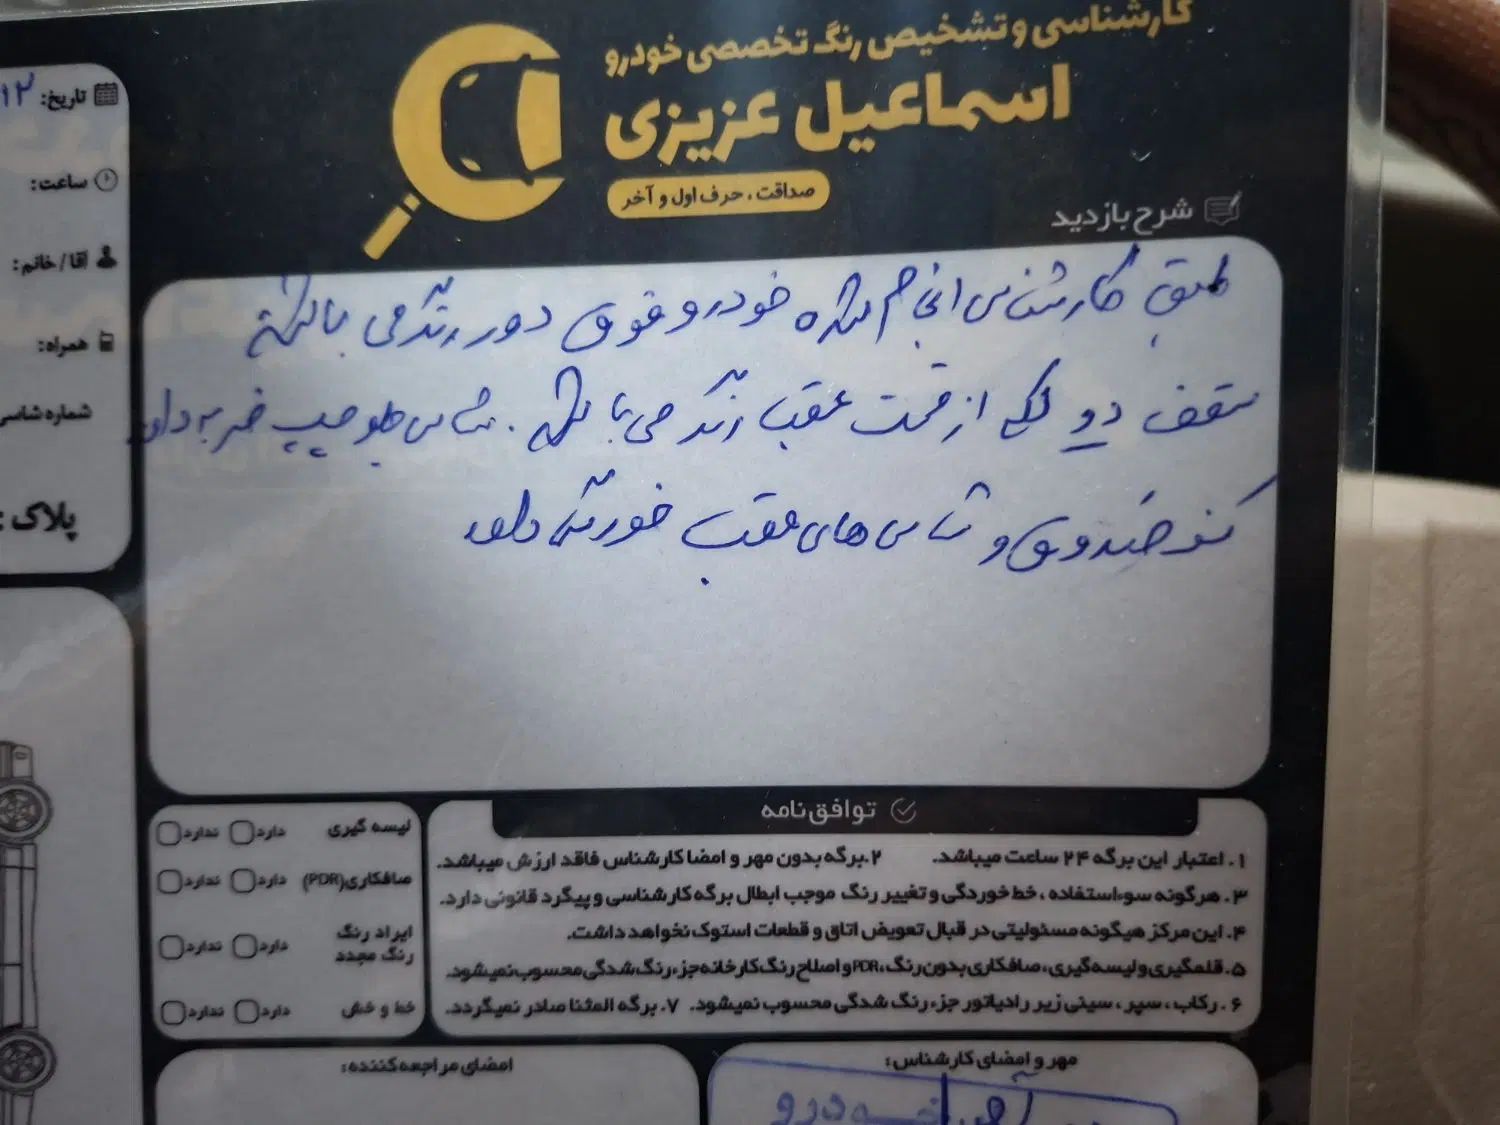 کارشناسی و تشخیص رنگ تخصصی خودرو
اسماعیل عزیزی
صداقت، حرف اول و آخر
شرح بازدید
تاریخ: ۱۲
ساعت:
آقا / خانم:
همراه:
شماره شاسی
پلاک:
طبق کارشناسی انجام شده خودرو فوق دور رنگ می باشد
سقف دو لکه از قسمت عقب رنگ می باشد. شاسی جلو چپ ضربه دارد
کف صندوق و شاسی های عقب خوردگی دارد
توافق‌نامه
۱. اعتبار این برگه ۲۴ ساعت میباشد. ۲. برگه بدون مهر و امضا کارشناس فاقد ارزش میباشد.
۳. هرگونه سوءاستفاده، خط خوردگی و تغییر رنگ موجب ابطال برگه کارشناسی و پیگرد قانونی دارد.
۴. این مرکز هیگونه مسئولیتی در قبال تعویض اتاق و قطعات استوک نخواهد داشت.
۵. قلمگیری و لیسه گیری، صافکاری بدون رنگ، PDR و اصلاح رنگ کارخانه جزء رنگ شدگی محسوب نمیشود.
۶. رکاب، سپر، سینی زیر رادیاتور جزء رنگ شدگی محسوب نمیشود. ۷. برگه المثنا صادر نمیگردد.
لیسه گیری دارد ندارد
صافکاری (PDR) دارد ندارد
ایراد رنگ
رنگ مجدد دارد ندارد
خط و خش دارد ندارد
مهر و امضای کارشناس:
امضای مراجعه کننده:
خودرو